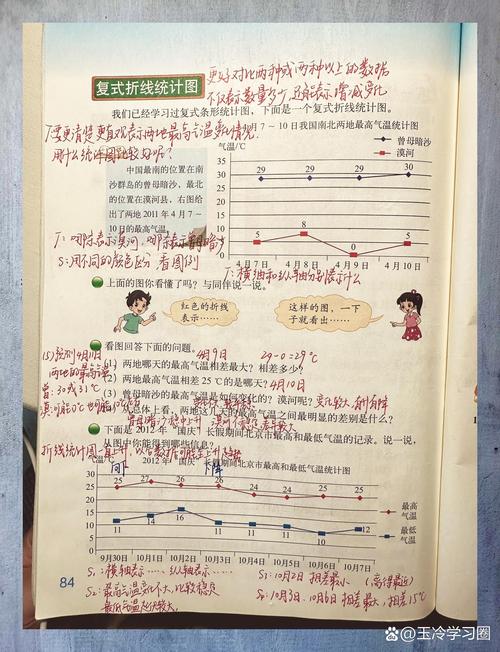 更好对比两种或两种以上的数据
不仅表示数量多少,还能表示增减变化
复式折线统计图
我们已经学习过复式条形统计图,下面是一个复式折线统计图。
T:要更清楚更直观表示两地最高气温变化情况,
4月7~10日我国南北两地最高气温统计图
用什么统计图比较好呢?
气温/℃
曾母暗沙
漠河
中国最南的位置在南
沙群岛的曾母暗沙,最北
的位置在漠河县,右图给
出了两地 2011 年 4 月 7~
10 日的最高气温。
40
30
20
10
0
29 29 29 30
5 8 0 5
4月7日 4月8日 4月9日 4月10日
T:哪条表示漠河,哪条表示曾母暗沙
S:用不同的颜色区分 看图例
T:横轴和纵轴分别表示什么
上面的图你看懂了吗?与同伴说一说。
红色的折线
表示……
这样的图,一下
子就看出……
看图回答下面的问题。
4月9日 29-0=29℃
(1)两地哪天的最高气温相差最大?相差多少?
(2)两地最高气温相差 25 ℃的是哪天?
4月10日
(3)曾母暗沙的最高气温是如何变化的?漠河呢?
(4)从总体上看,两地这几天的最高气温之间最明显的差别是什么?
(5)预测4月11日
两地的最高气温
曾:30或31℃
变化较大,有升有降
下面是 2012 年“国庆”长假期间北京市最高和最低气温的记录。说一说,
从图中你能得到哪些信息?
2012 年“国庆”长假期间北京市最高和最低气温统计图
气温/℃
30
25
20
15
10
5
0
25 27 26 24
11 14 16 11 10 12
最高
气温
最低
气温
9月30日 10月1日 10月2日 10月3日 10月4日 10月5日 10月6日 10月7日
S₁:横轴表示…… 纵轴表示……
S₂:最高气温变化不大,比较稳定
最低气温起伏较大,
S₃:10月2日 相差最小 (离得最近)
S₄:10月3日、10月6日 相差最大,相差15℃
84
@玉冷学习圈